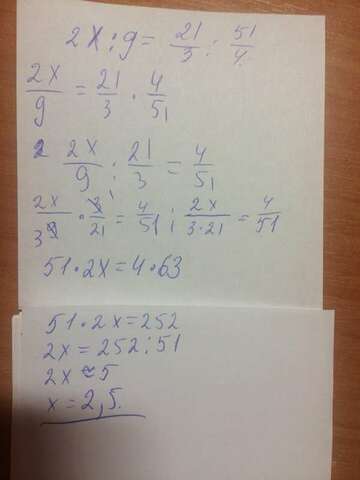 2x : 9 = 21/3 : 51/4
2x/9 = 21/3 · 4/51
2 2x/9 : 21/3 = 4/51
2x/3 9 · 3 1/21 = 4/51 ; 2x/3·21 = 4/51
51 · 2x = 4 · 63
51 · 2x = 252
2x = 252 : 51
2x ≈ 5
x = 2,5.